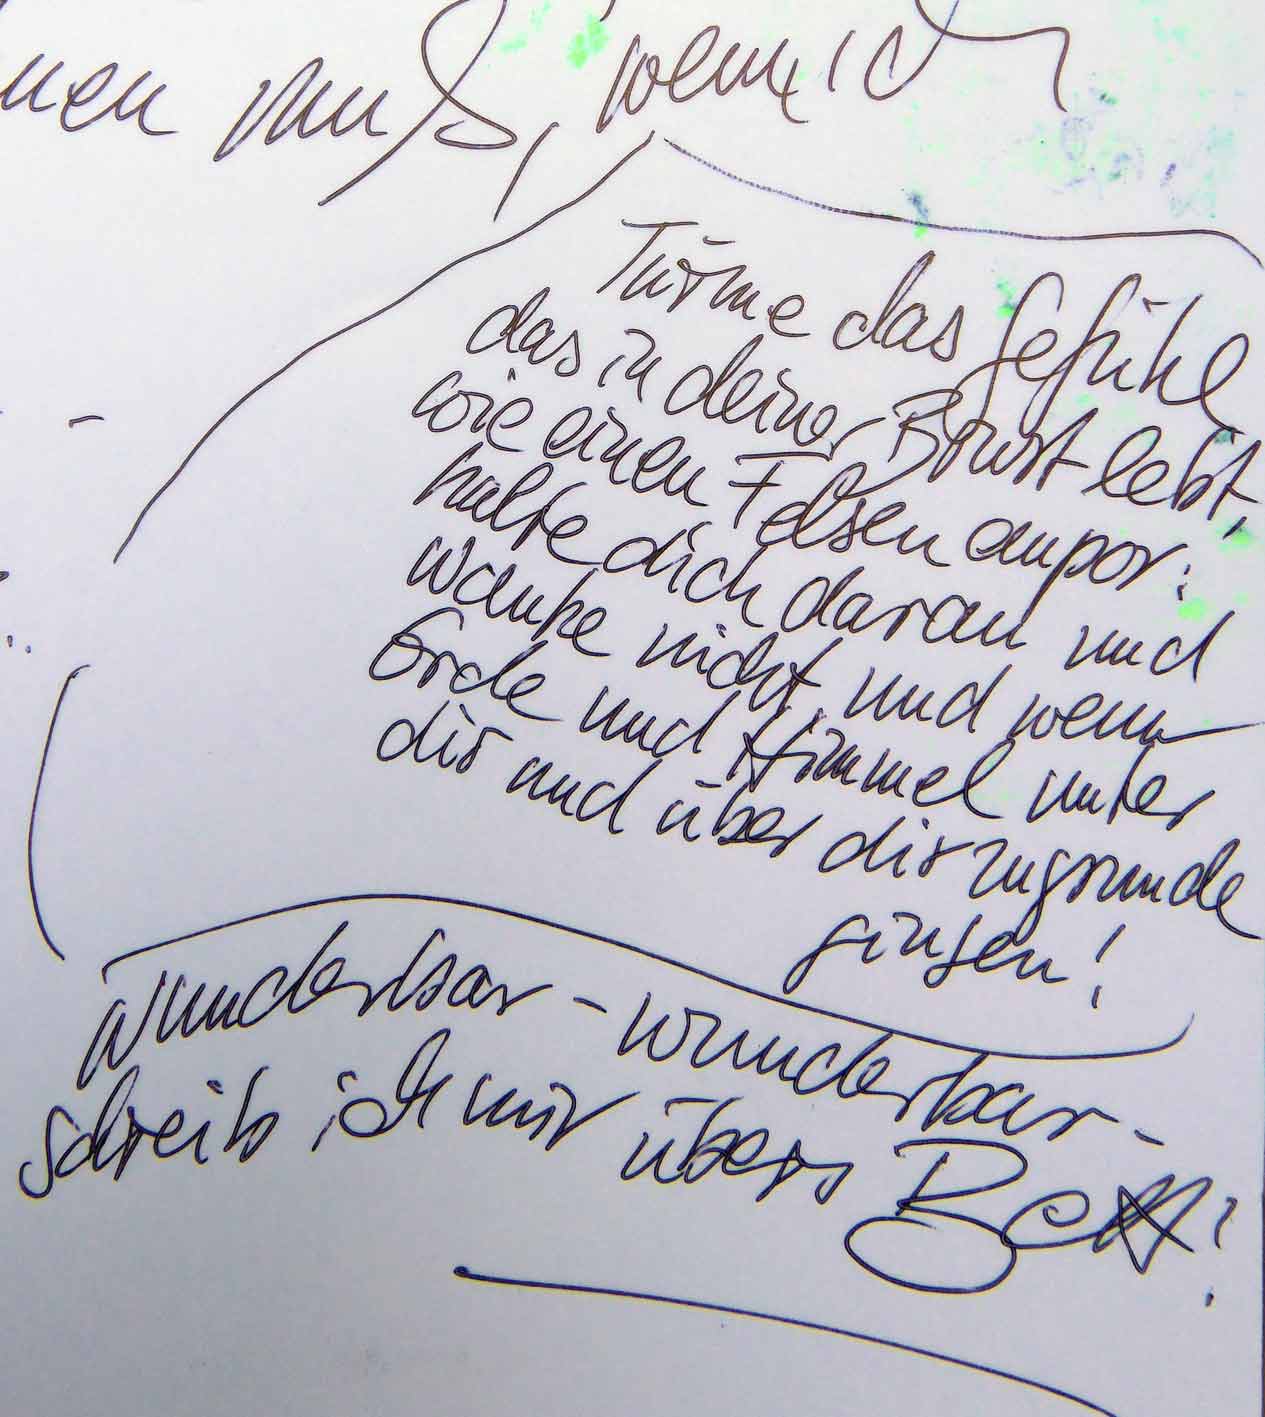 nen muß, wenn ich
Türme das Gefühl
das in deiner Brust lebt,
wie einen Felsen empor:
halte dich daran und
wanke nicht, und wenn
Erde und Himmel unter
dir und über dir zugrunde
gingen!
Wunderbar - wunderbar -
schreib ich mir übers Bett!